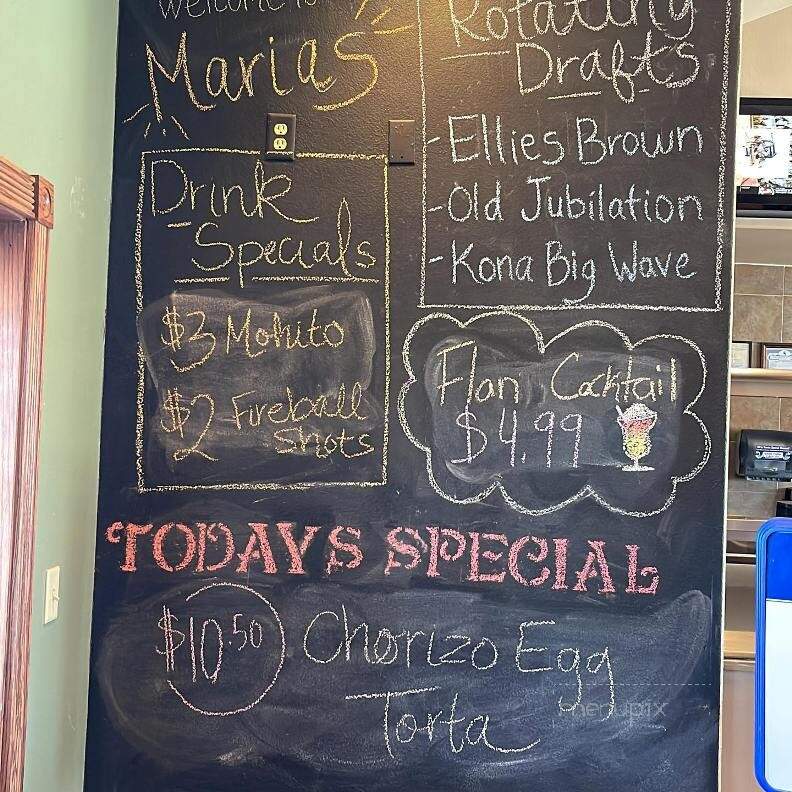 Welcome to
Marias
Drink
Specials
$3 Mohito
$2 Fireball
Shots
Rotating
Drafts
-Ellies Brown
-Old Jubilation
-Kona Big Wave
Flan Cocktail
$4.99
TODAYS SPECIAL
$10.50 Chorizo Egg
Torta
menupix